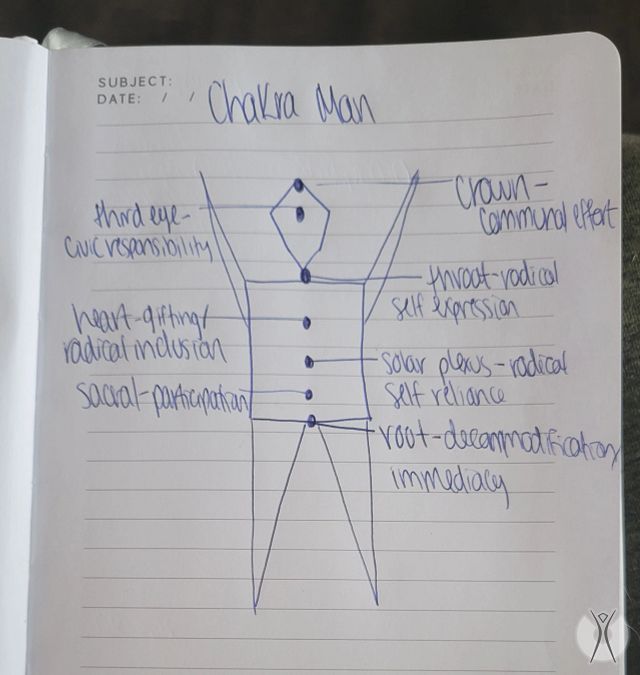 SUBJECT:
DATE: / /
Chakra Man
third eye-
civic responsibility
crown-
communal effort
throat-radical
self expression
heart-gifting/
radical inclusion
solar plexus-radical
self reliance
sacral-participation
root-decommodification
immediacy